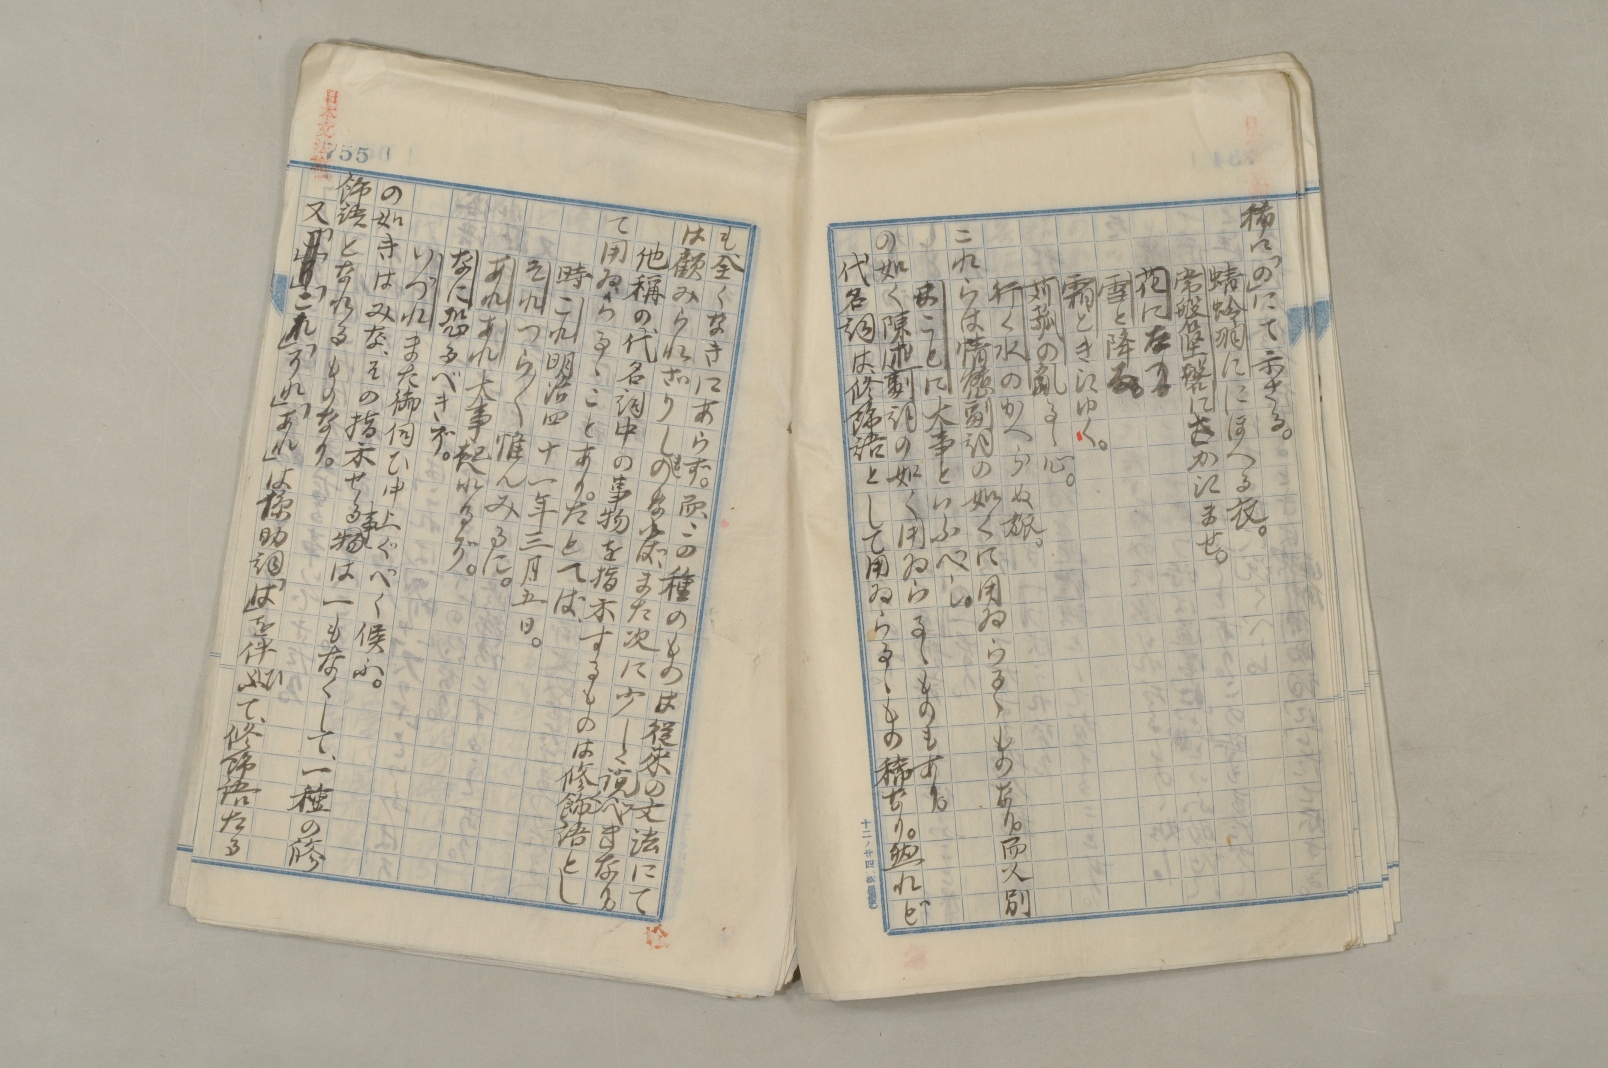 稀に「の」にて示さる。
蜻蛉羽ににほへる衣。
常磐堅磐にさかえませ。
花になる
雪と降る
霜ときえゆく。
苅菰の乱るゝ心。
行く水のかへらぬ旅。
これらは情態副詞の如くに用ゐらるゝものあり。而又別
の如く陳述副詞の如く用ゐらるゝものもあり。
まことに大事といふべし。
代名詞は修飾語として用ゐらるゝもの稀なり。然れど
も全くなきにあらず。而この種のものは従来の文法にて
は顧みられざりしものなれば、また次に少しく説くべきなり。
他称の代名詞中の事物を指示するものは修飾語とし
て用ゐらるゝことあり。たとへば、
時これ明治四十一年三月五日。
それつら〱惟んみるに。
あれあれ大事起れるぞ。
なに恐るべきぞ。
いづれまた御伺ひ申上ぐべく候ふ。
の如きはみな、その指示せる事物は一もなくして、一種の修
飾語となれるものなり。
又「これ」「それ」「あれ」は係助詞「は」を伴ひて、修飾語たる
755
日本文法論